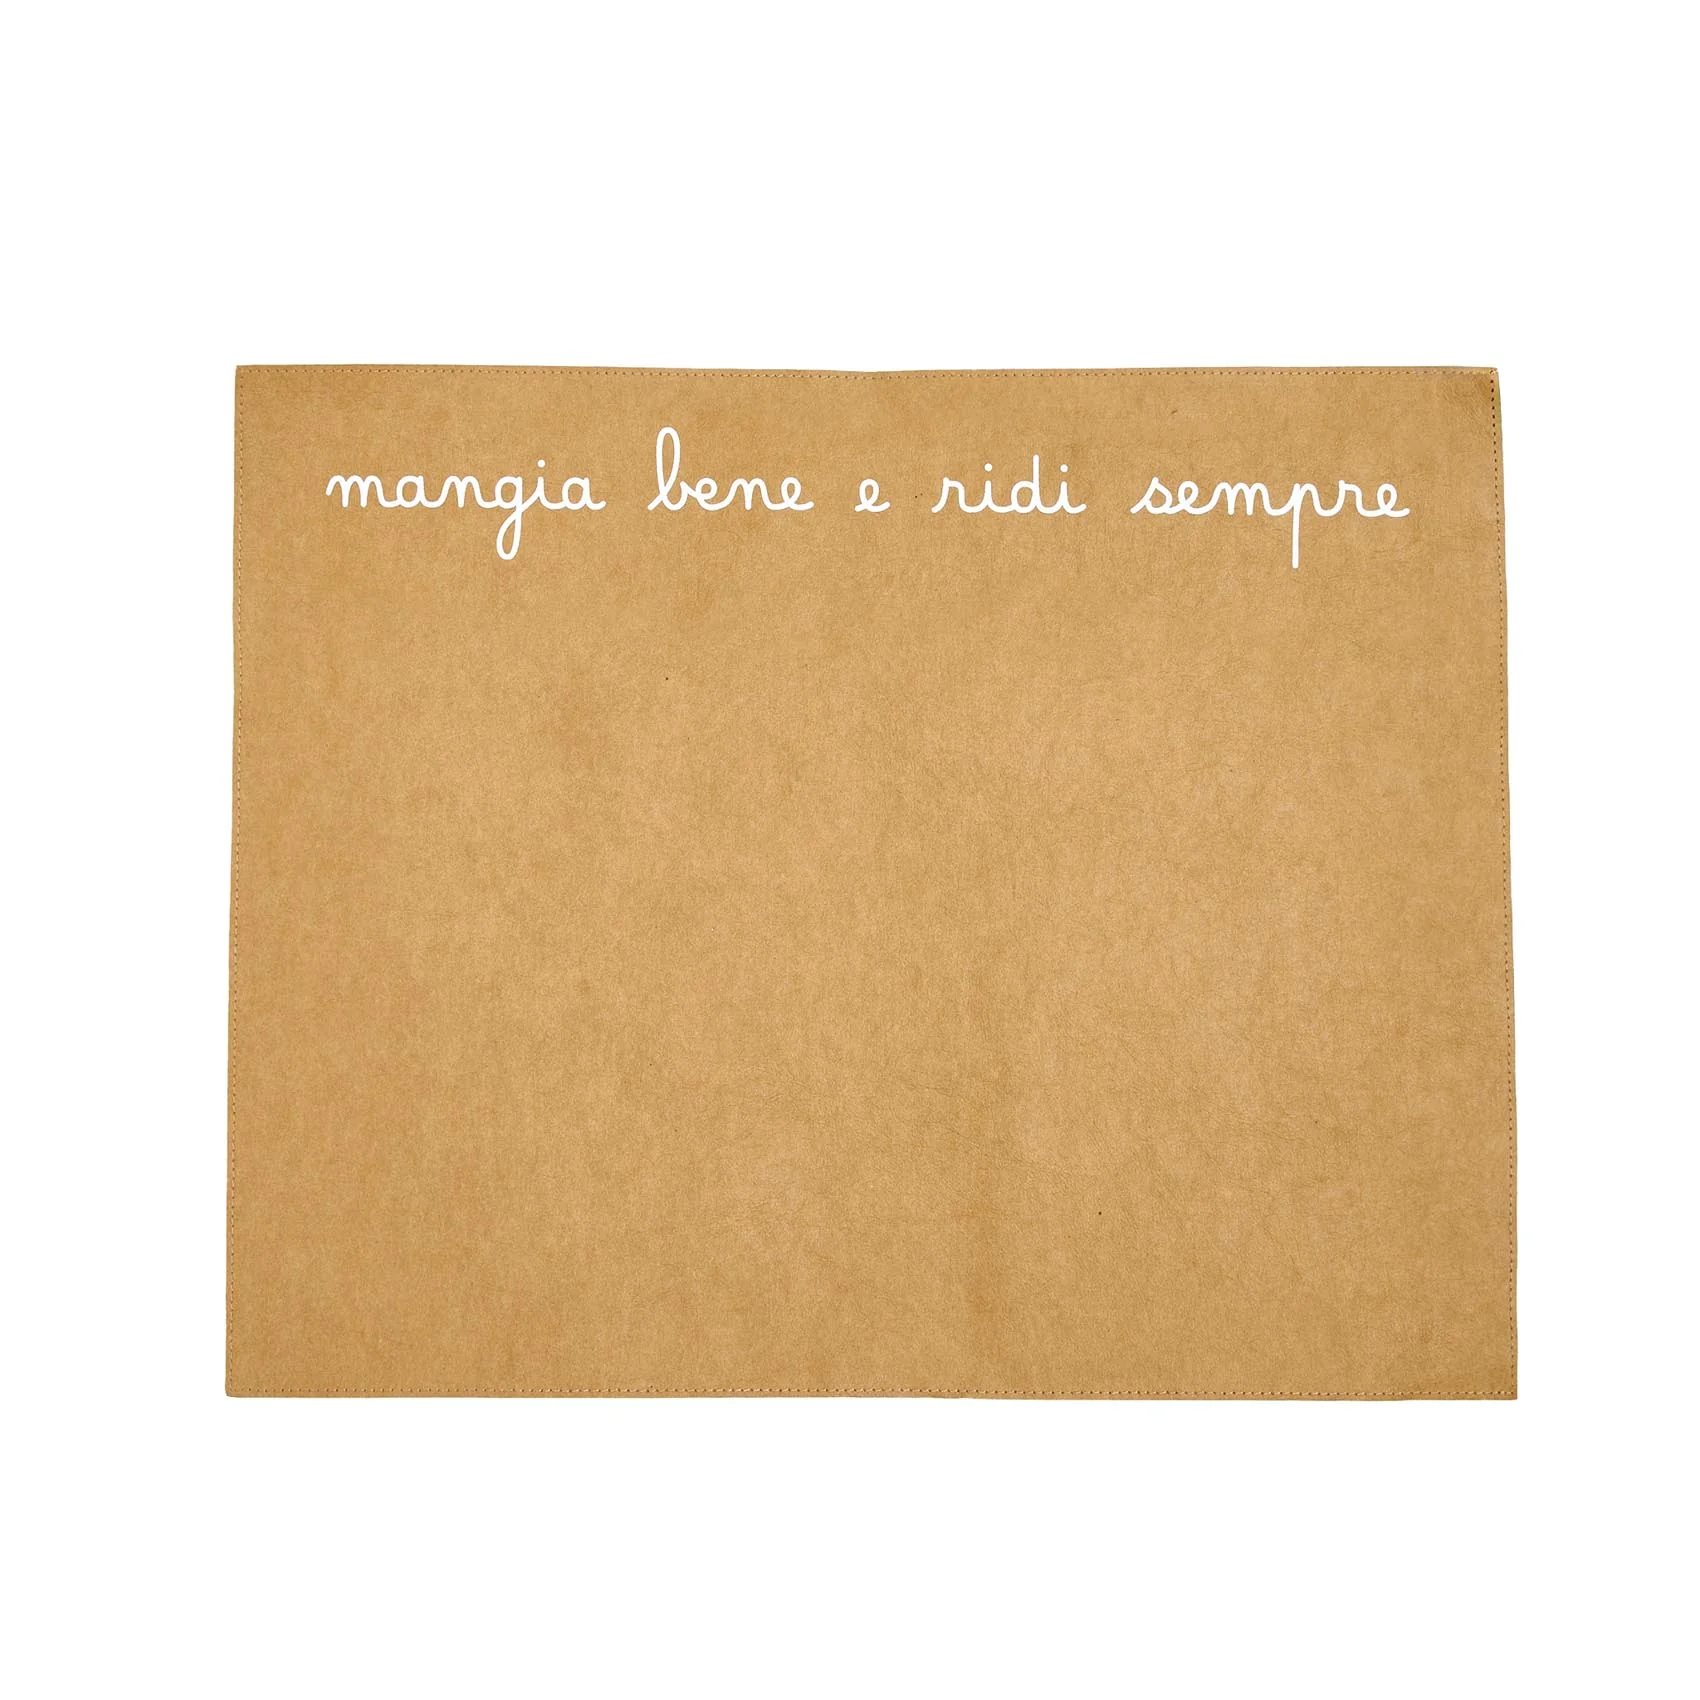 mangia bene e ridi sempre